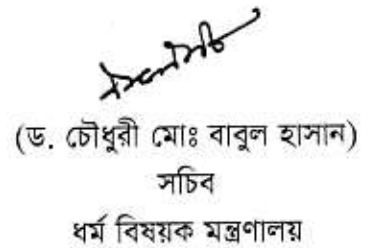 (ড. চৌধুরী মোঃ বাবুল হাসান)
সচিব
ধর্ম বিষয়ক মন্ত্রণালয়